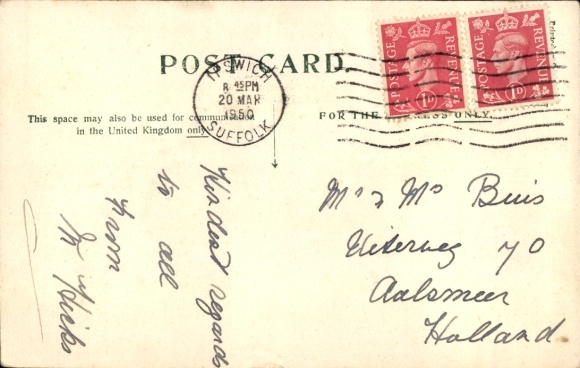 POST CARD.
IPSWICH
8 45PM
20 MAR
1950
SUFFOLK
POSTAGE REVENUE
1D
POSTAGE REVENUE
1D
This space may also be used for communication
in the United Kingdom only.
FOR THE ADDRESS ONLY.
Kindest regards
to all
from
M Hicks
Mr & Mrs Buis
Uiterweg 70
Aalsmeer
Holland